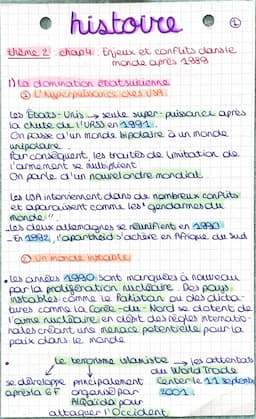 histoire
①
thème 2 : chap 4 : Enjeux et conflits dans le
monde après 1989
I) La domination étatsunienne
① L'hyperpuissance des USA
Les États-Unis → seule super-puissance après
la chute de l'URSS en 1991.
On passe d'un monde bipolaire à un monde
unipolaire.
Par conséquent, les traités de limitation de
l'armement se multiplient
On parle d'un nouvel ordre mondial.
Les USA interviennent dans de nombreux conflits
et apparaissent comme les "gendarmes du
monde".
Les deux allemagnes se réunifient en 1990
En 1992, l'apartheid s'achève en Afrique du Sud
② Un monde instable
Les années 1990 sont marquées à nouveau
par la prolifération nucléaire. Des pays
instables comme le Pakistan ou des dicta-
tures comme la Corée-du-Nord se dotent de
l'arme nucléaire en dépit des règles internatio-
nales créant une menace potentielle pour la
paix dans le monde
Le terrorisme islamiste → les attentats
du World Trade
Center le 11 septembre
2001
se développe
après la GF
principalement
organisé par
Al Qaïda pour
attaquer l'Occident